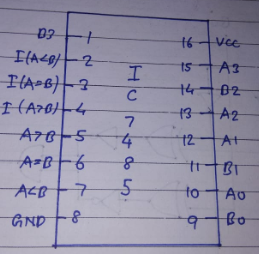 D3 - 1
I(A<B) - 2
I(A=B) - 3
I(A>B) - 4
A>B - 5
A=B - 6
A<B - 7
GND - 8
I
C
7
4
8
5
16 - VCC
15 - A3
14 - B2
13 - A2
12 - A1
11 - B1
10 - A0
9 - B0